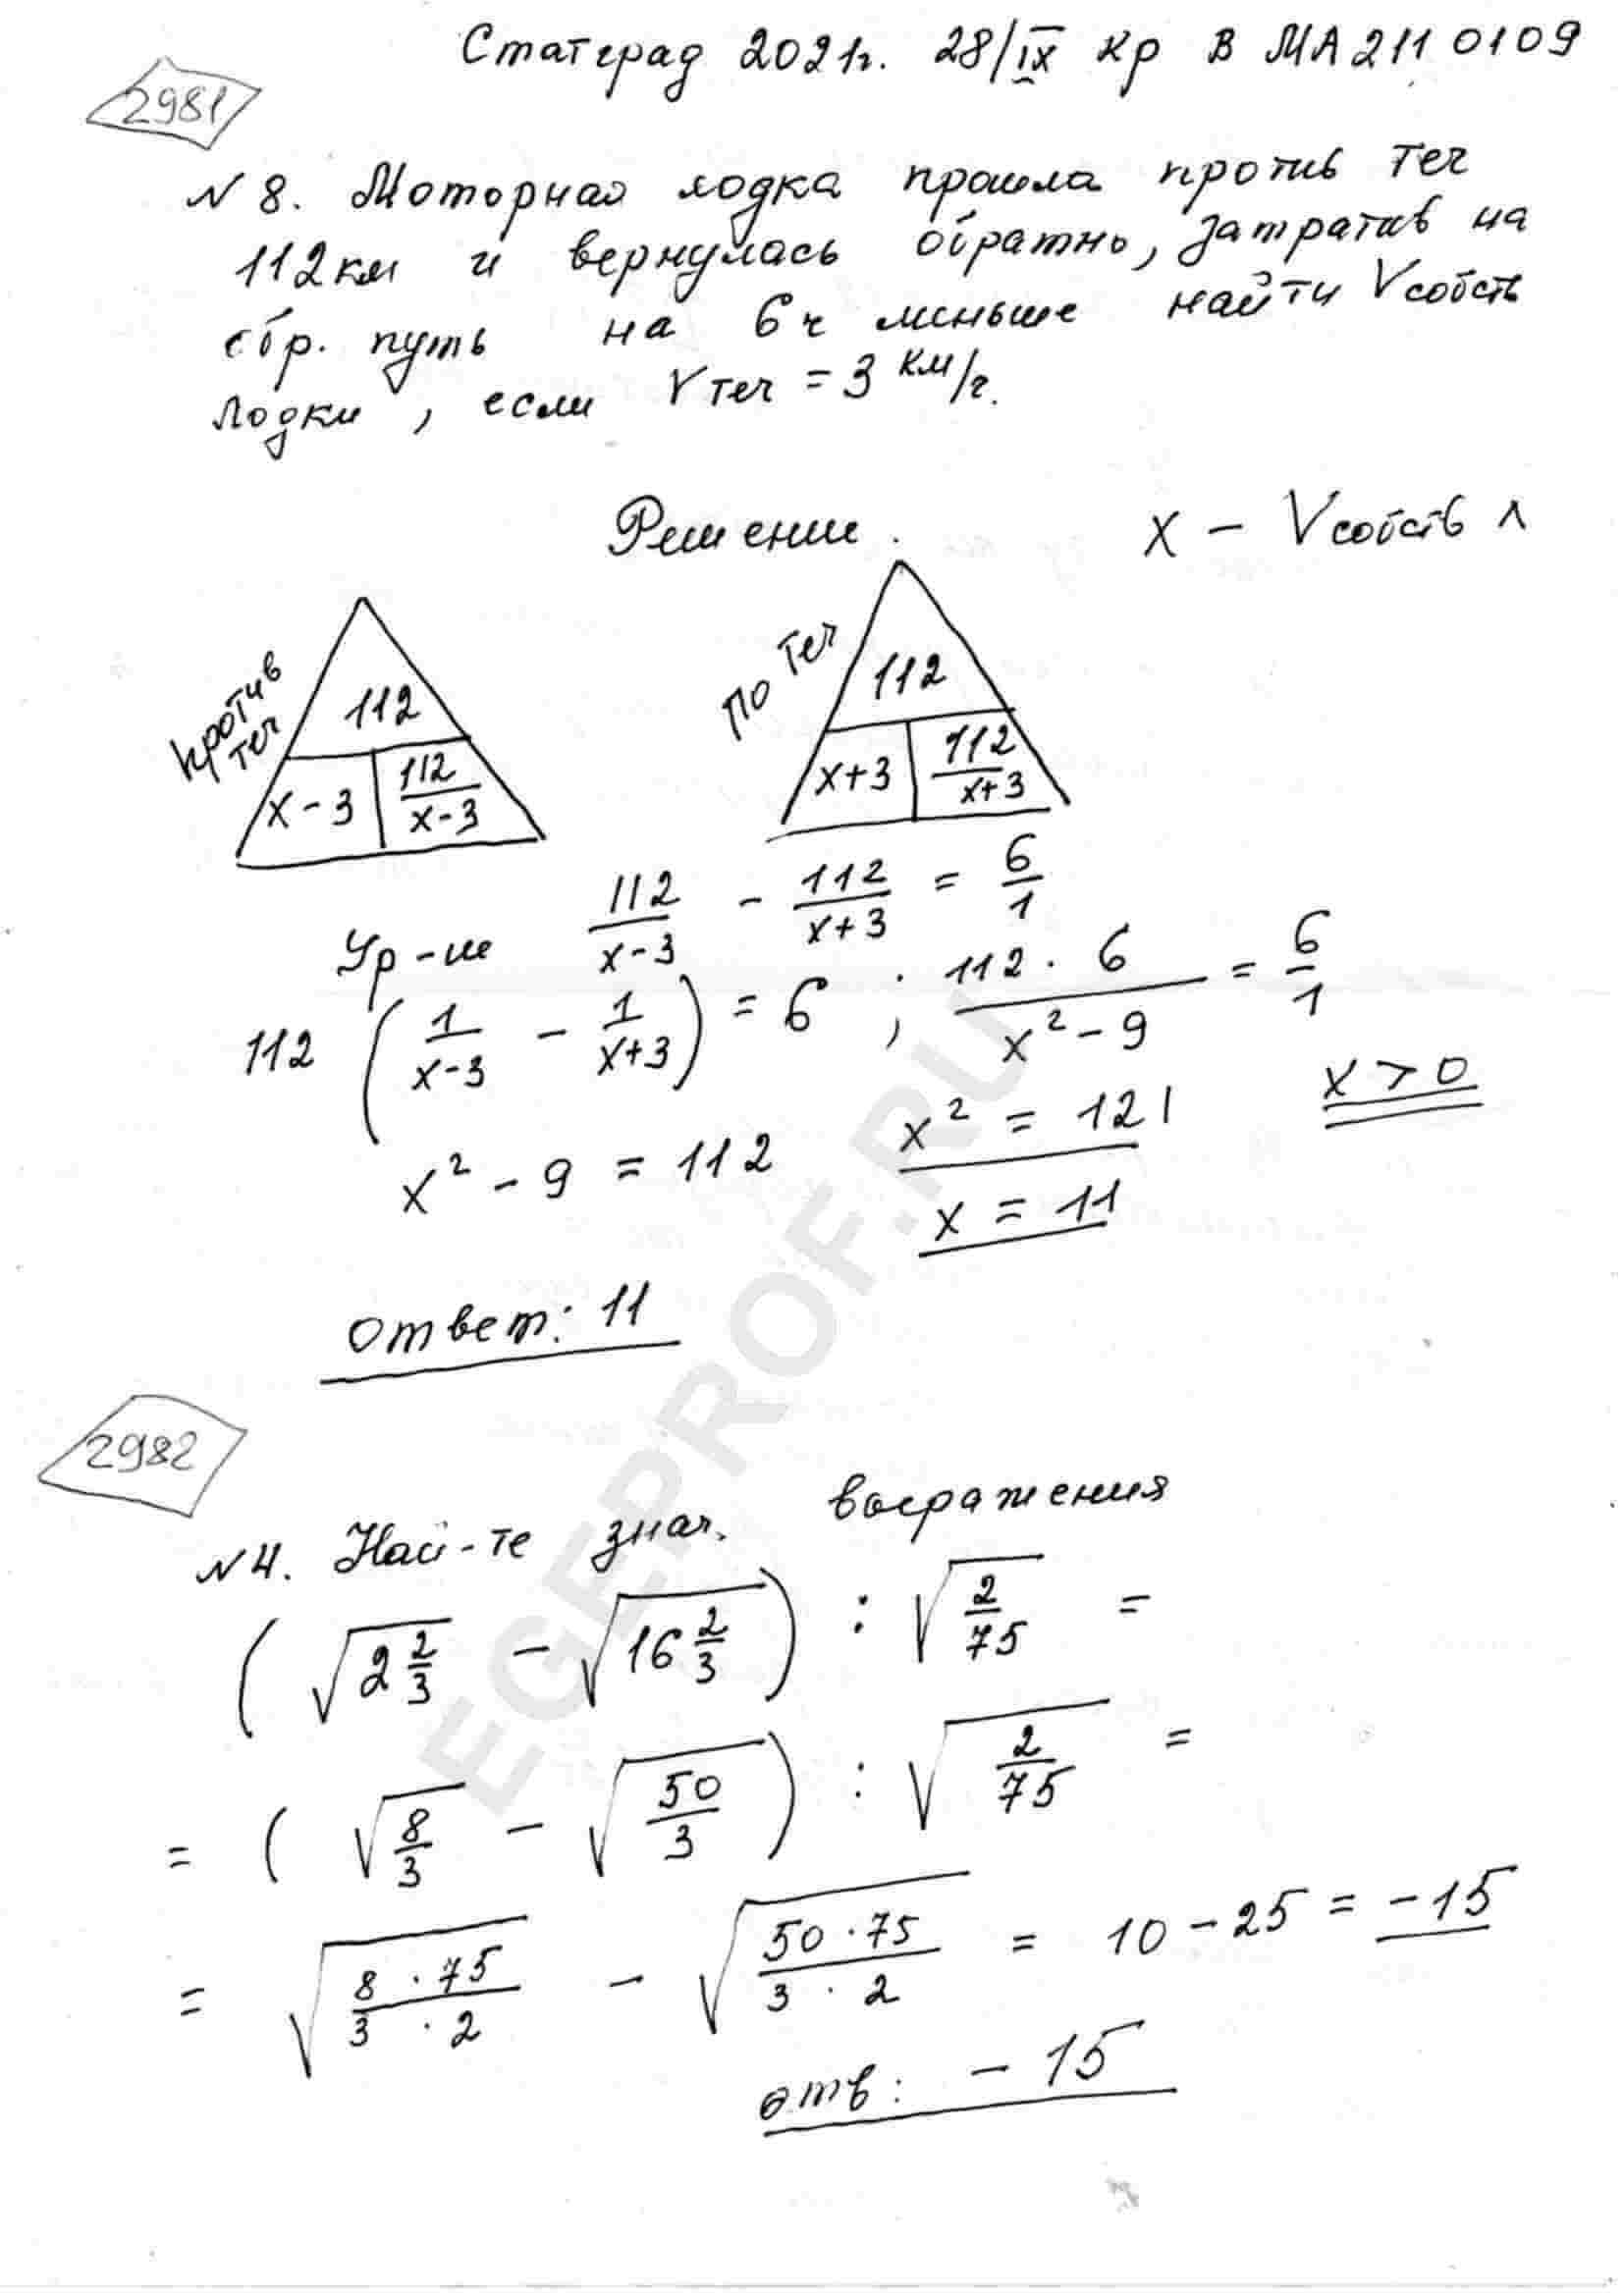 Статград 2021г. 28/IX кр в МА2110109
2981
N 8. Моторная лодка прошла против теч
112км и вернулась обратно, затратив на
обр. путь на 6ч меньше найти Vсобств
лодки, если Vтеч = 3 км/г.
Решение. x – Vсобств л
против теч 112 x-3 112/(x-3)
по теч 112 x+3 112/(x+3)
Ур-ие 112/(x-3) - 112/(x+3) = 6/1
112 (1/(x-3) - 1/(x+3)) = 6 ; (112·6)/(x²-9) = 6/1
x² - 9 = 112 x² = 121 x > 0
x = 11
ответ: 11
2982
N4. Най-те знач. выражения
(√(2 2/3) - √(16 2/3)) : √(2/75) =
= (√(8/3) - √(50/3)) : √(2/75) =
= √((8·75)/(3·2)) - √((50·75)/(3·2)) = 10 - 25 = -15
отв: -15
EGEPROF.RU